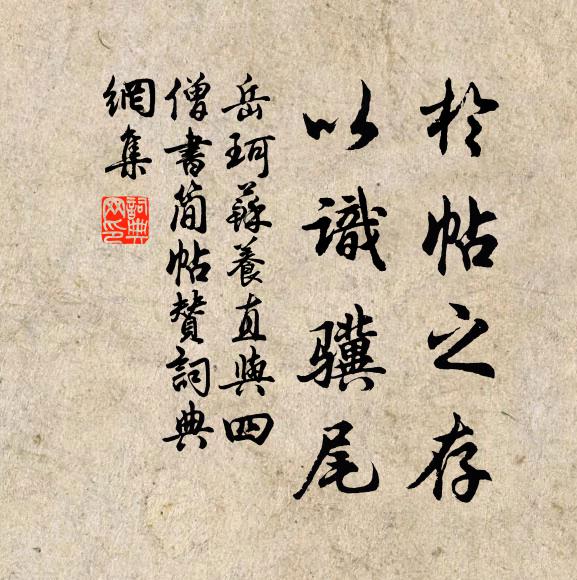 於帖之存
以識驥尾
岳珂蘇養直與四
僧書簡帖赞詞典
網集
詞典網印